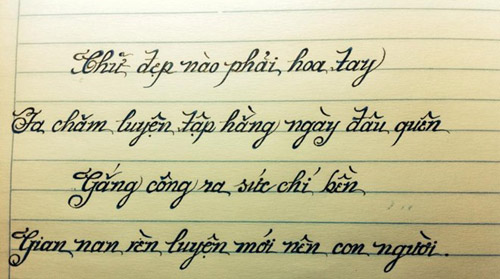 Chữ đẹp nào phải hoa tay
Ta chăm luyện tập hằng ngày đâu quên
Gắng công ra sức chí bền
Gian nan rèn luyện mới nên con người.